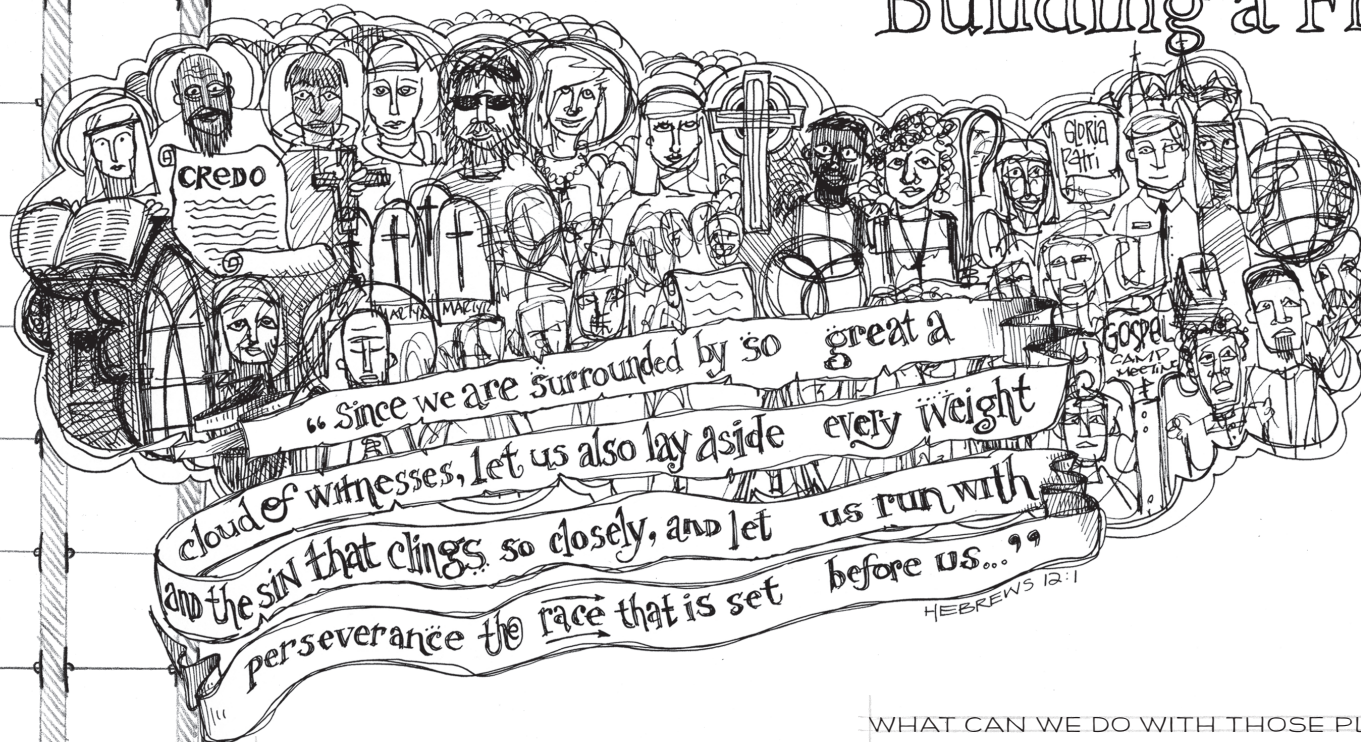 Building a
CREDO
GLORIA
Patri
MARTYR MARTYR
GOSPEL
CAMP
MEETING
“since we are surrounded by so great a
cloud of witnesses, let us also lay aside every weight
and the sin that clings so closely, and let us run with
perseverance the race that is set before us...”
HEBREWS 12:1
WHAT CAN WE DO WITH THOSE